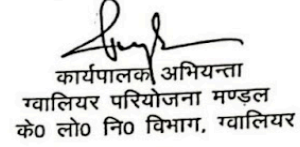 कार्यपालक अभियन्ता
ग्वालियर परियोजना मण्डल
के० लो० नि० विभाग, ग्वालियर